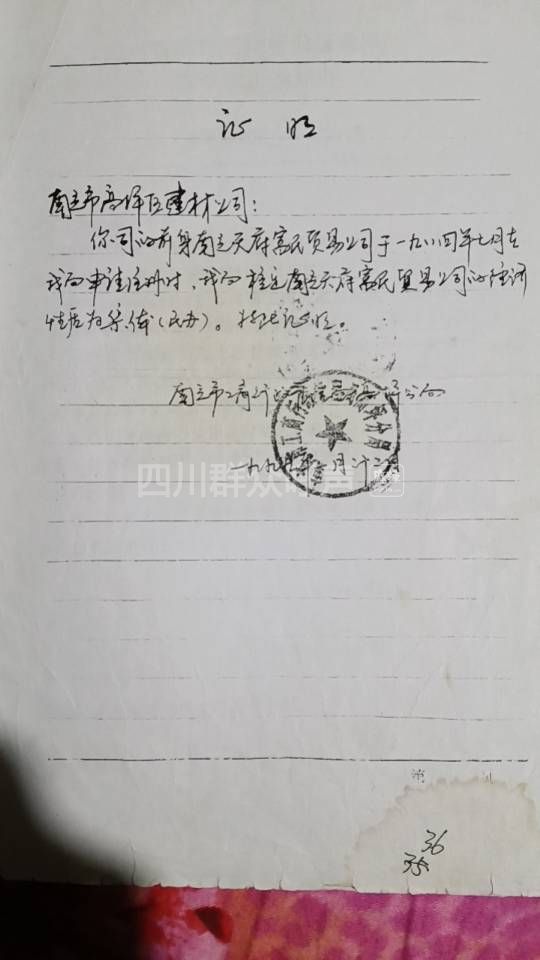 证明
南充市高坪区建材公司：
你司的前身南充天府富民贸易公司于一九八四年七月在
我局申请注册时，我局核定南充天府富民贸易公司的经济
性质为集体（民办）。特此证明。
南充市工商行政管理局高坪分局
一九九 年一月廿二日
四川群众呼声
36
35